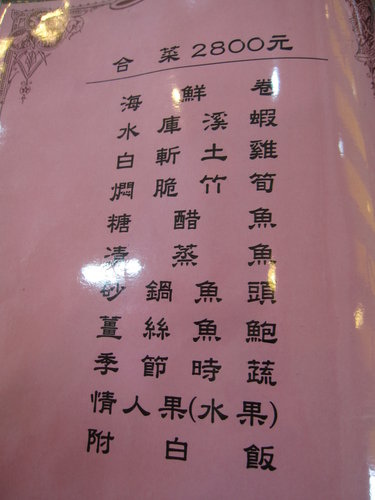 合菜2800元
海鮮卷
水庫溪蝦
白斬土雞
燜脆竹筍
糖醋魚
清蒸魚
砂鍋魚頭
薑絲魚鮑
季節時蔬
情人果(水果)
附白飯